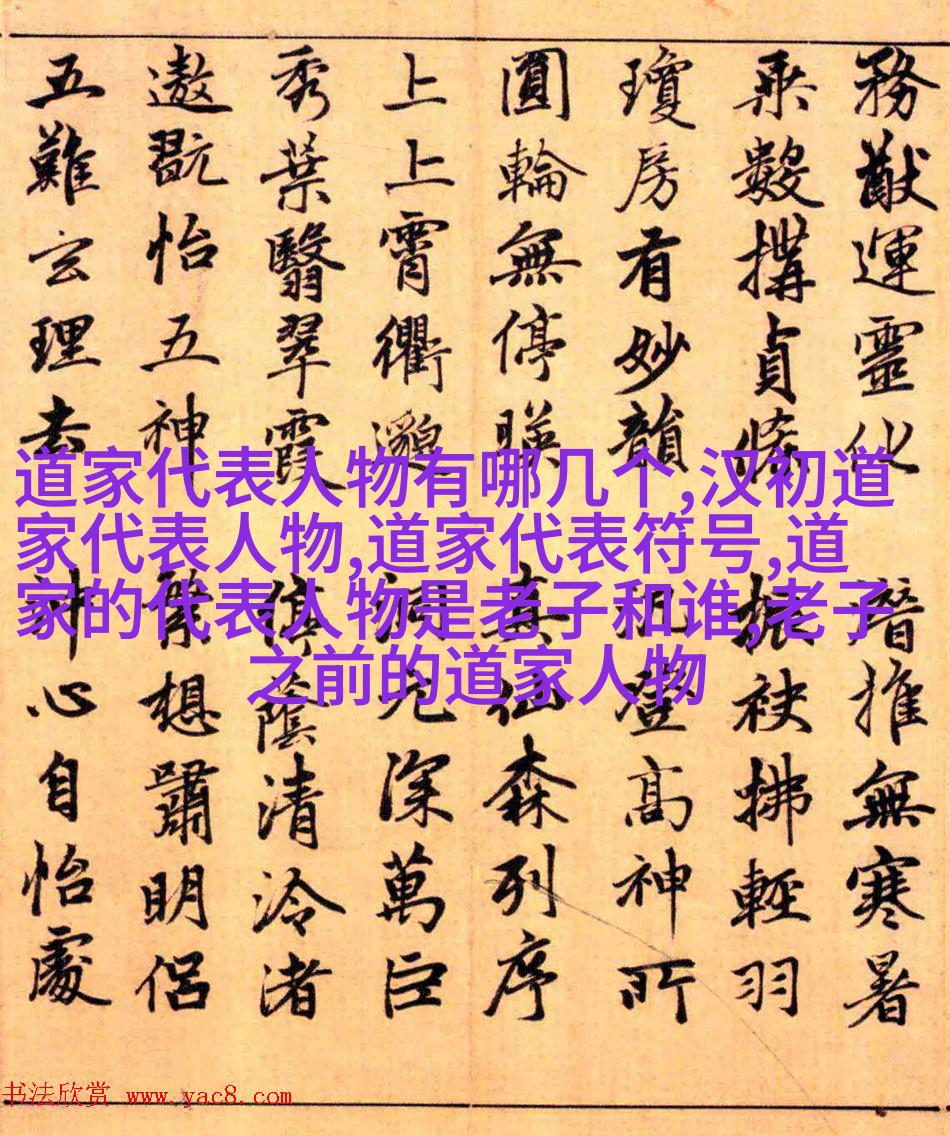 務猷運靈化暗推無寒暑
乘數構貞條振袂拂輕羽
瓊房有妙韻登高神所
圓輪無停暎真仙森列序
上上霄衢邈洞元深萬巨
秀葉翳翠霞停蔭清泠渚
遨翫怡五神繁想嘯明侶
五難玄理去冲心自怡處
道家代表人物有哪几个,汉初道
家代表人物,道家代表符号,道
家的代表人物是老子和谁,老子
之前的道家人物
书法欣赏 www.yac8.com